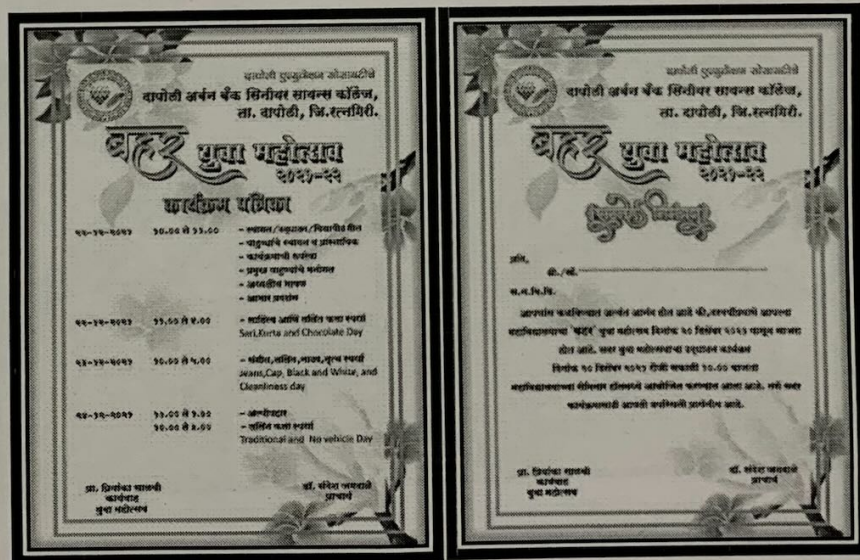 दापोली एज्युकेशन सोसायटीचे
दापोली अर्बन बँक सिनीयर सायन्स कॉलेज,
ता. दापोली, जि.रत्नागिरी.
बहर युवा महोत्सव
२०२१-२२
कार्यक्रम पत्रिका
१०.०० ते ११.००
- पाहुण्यांचे स्वागत व प्रास्ताविक
- कार्यक्रमाची रूपरेषा
- प्रमुख पाहुण्यांचे मनोगत
- अध्यक्षीय भाषण
- आभार प्रदर्शन
२२-१२-२०२१
- साहित्य आणि ललित कला स्पर्धा
Sari,Kurta and Chocolate Day
२३-१२-२०२१ १०.०० ते ५.०० - संगीत,ललित,नाट्य,नृत्य स्पर्धा
Jeans,Cap, Black and White, and
Cleanliness day
२४-१२-२०२१ - अल्पोपहार
- ललित कला स्पर्धा
Traditional and No vehicle Day
प्रा. प्रियांका साळवी
कार्यवाह
युवा महोत्सव
डॉ. संदेश जगदाळे
प्राचार्य
दापोली एज्युकेशन सोसायटीचे
दापोली अर्बन बँक सिनीयर सायन्स कॉलेज,
ता. दापोली, जि.रत्नागिरी.
बहर युवा महोत्सव
२०२१-२२
प्रति,
श्री./सौ.
स.न.वि.वि.
आपणांस कळविण्यात अत्यंत आनंद होत आहे की, आपल्या
महाविद्यालयाचा 'बहर' युवा महोत्सव दिनांक डिसेंबर २०२१ पासून साजरा
होत आहे. सदर युवा महोत्सवाचा उद्घाटन कार्यक्रम
दिनांक डिसेंबर २०२१ रोजी सकाळी १०.०० वाजता
महाविद्यालयाच्या सेमिनार हॉलमध्ये आयोजित करण्यात आला आहे. तरी सदर
कार्यक्रमासाठी आपली उपस्थिती प्रार्थनीय आहे.
प्रा. प्रियांका साळवी
कार्यवाह
युवा महोत्सव
डॉ. संदेश जगदाळे
प्राचार्य